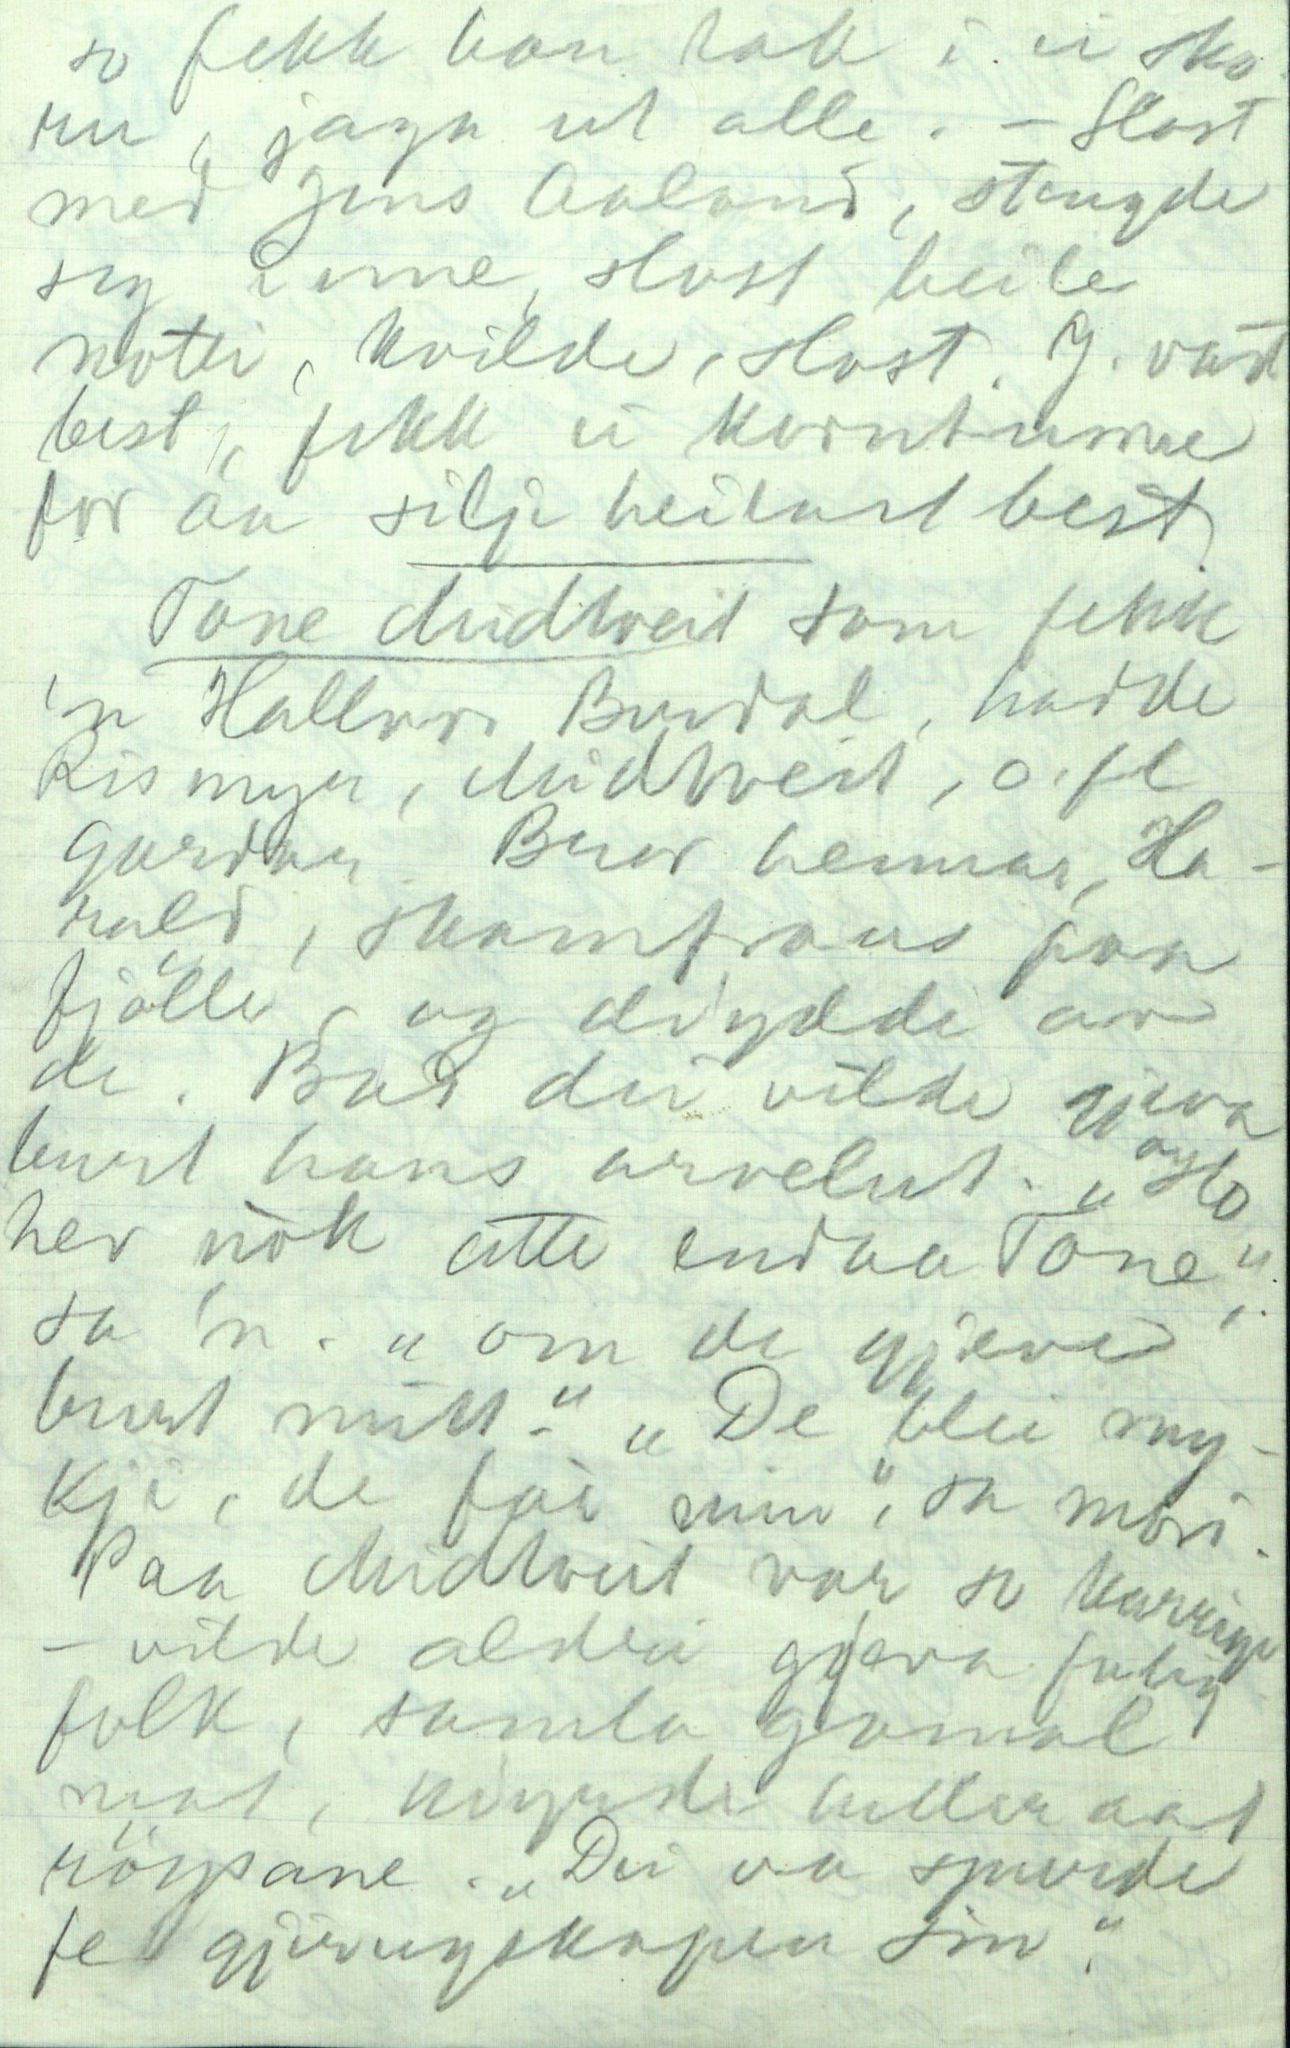 so fekk han tak i ei sko-
ru, jaga ut alle. - Slost
med Jens Aaland, stengde
seg inne, slost heile
notti, kvilde, slost. J. vart
best, fekk ei korntunne
for aa silji heitast best.
Tone Midtveit som fekk
'n Hallvor Burdal, hadde
Rismyr, Midtveit, o. fl
gardar. Bror hennar, Ha-
rald, skamfraus paa
fjölle, og döydde av
de. Bad dei vilde gjeva
burt hans arvelut. "og Ho
her nok atte endaa Tone",
sa 'n. "om de gjeve
burt mitt." "De blei my-
kji, de fær min", sa mori.
Paa Midtveit var so karrige
- vilde aldri gjeva fatig
folk, samla gamal
mat, köyrde heller aat
röyspane. "Dei va spurde
fe gjerugskapen sin".